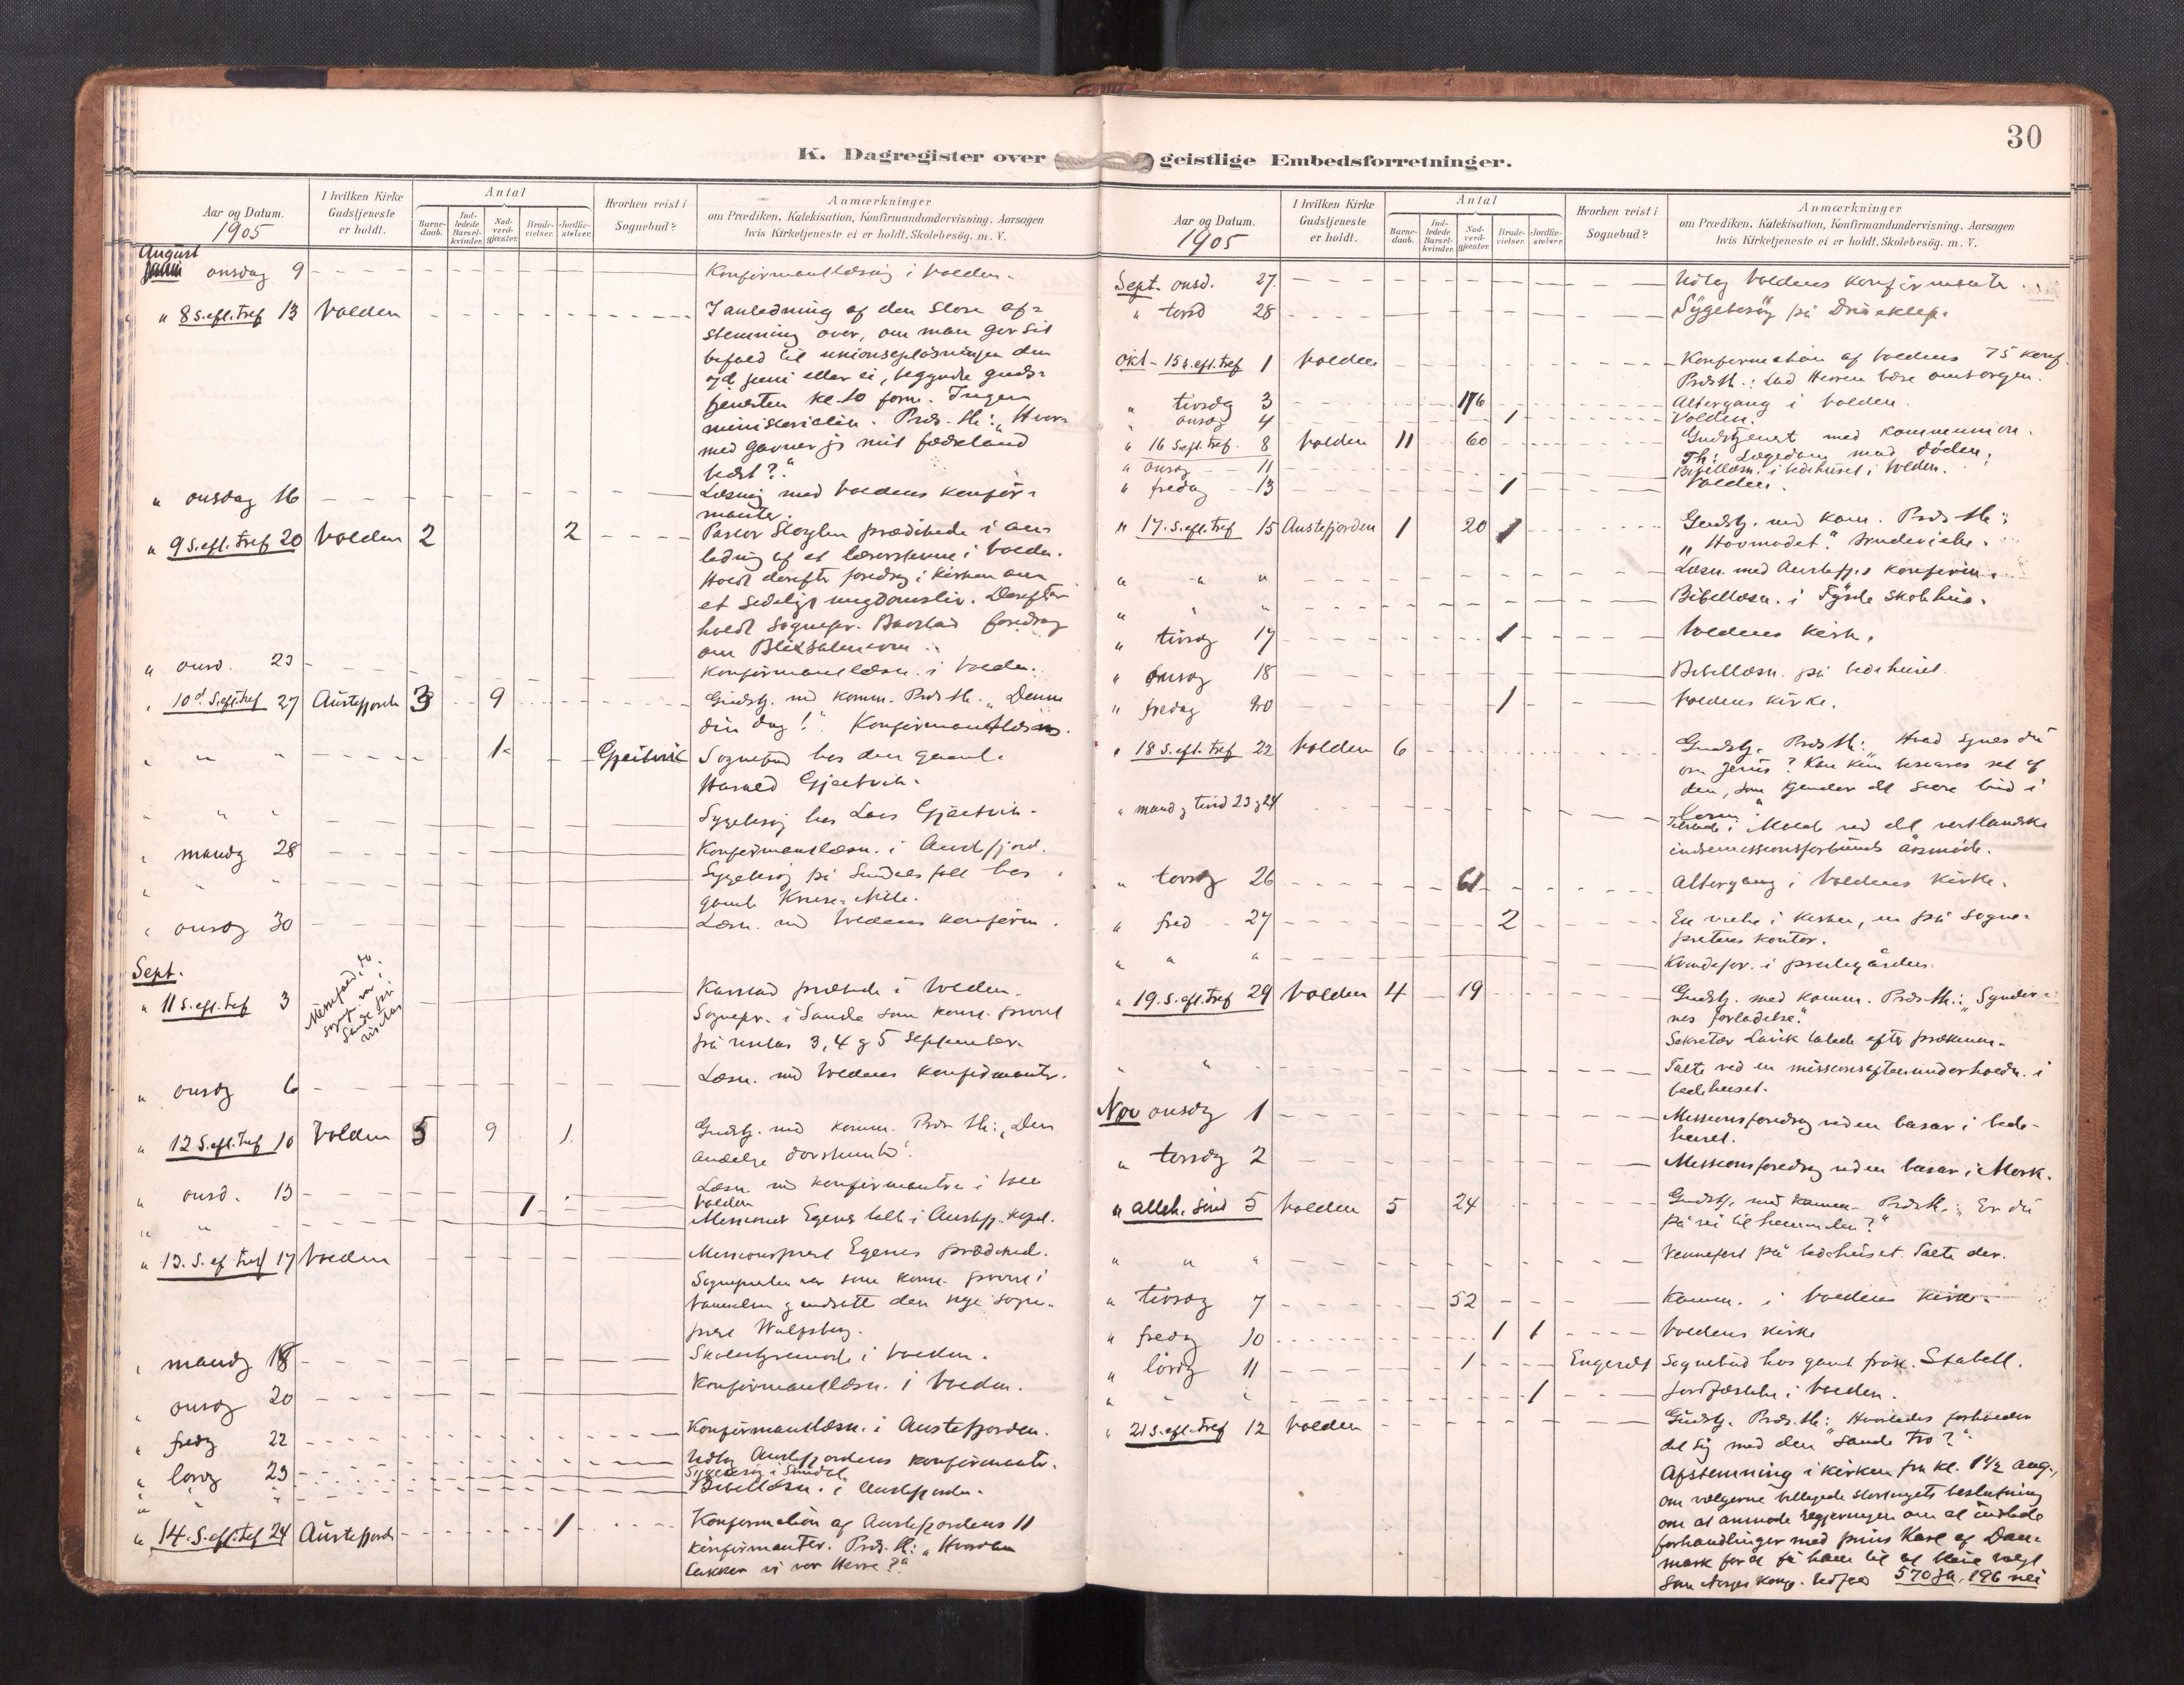 30
K. Dagregister over geistlige Embedsforretninger.
Aar og Datum.
1905
I hvilken Kirke Gudstjeneste er holdt.
Antal
Barne-daab.
Ind-ledede Barsel-kvinder.
Nad-verd-gjester.
Brude-vielser.
Jordfæ-stelser.
Hvorhen reist i Sognebud?
Anmærkninger
om Prædiken, Katekisation, Konfirmandundervisning. Aarsagen
hvis Kirketjeneste ei er holdt, Skolebesög. m. V.
August
onsdag 9 Konfirmantlæsnig i Volden.
" 8 S. eft. Tref 13 Volden I anledning af den store af-
stemning over, om man gav sit
bifald til unionsopløsningen den
7d juni eller ei, begyndte guds-
tjenesten kl 10 form. Ingen
ministerialia. Præd. th: "Hvor-
med gavner jeg mit fædreland
bedst?"
" onsdag 16 Læsnig med Voldens konfir-
manter.
" 9 S. eft. Tref 20 Volden 2 2 Pastor prædikede i an-
ledning af et i Volden.
Holdt derefter foredrag i kirken om
et sedeligt ungdomsliv. Derefter
holdt sognepr. foredrag
om
" onsd. 23 Konfirmantlæsn. i Volden.
" 10d S. eft. tref 27 Austefjorden 3 9 Gudstj. med komm. Præd. th. "Denne
din dag!" Konfirmantlæsn.
" " " 1 Gjeitvik Sognebud hos den gamle
Gjeitvik.
" " " Sygebesøg hos Lars Gjeitvik.
" mandg 28 Konfirmantlæsn. i Austefjord.
" " " Sygebesøg på hos
gamle
" onsdg 30 Læsn. med Voldens konfirm.
Sept.
" 11 S. eft. tref 3 prædikede i Volden.
Sognepr. i Sande som konst. provst
på visitas 3, 4 og 5 September.
" onsdg 6 Læsn. med Voldens konfirmanter.
" 12 S. eft. tref 10 Volden 5 9 1 Gudstj. med komm. Præd. th: "Den
andelige døvstumhed".
" onsd. 13 Læsn. med konfirmanter i
1 Volden
" " Missionær Egenes talte i Austefj. kapel.
" 13. S. ef. tref 17 Volden Missionsprest Egenes prædiked.
Sognepresten var som konst. provst i
Vannelven og indsatte den nye sogne-
prest
" mandg 18 Skolestyremøde i Volden.
" onsdg 20 Konfirmantlæsn. i Volden.
" fredg 22 Konfirmantlæsn. i Austefjorden.
" lørdg 23 Udtog Austefjordens konfirmanter.
Sygebesøg i Sundal.
" " " Bibellæsn. i Austefjorden.
" 14. S. eft. tref 24 Austefjorden 1 Konfirmation af Austefjordens 11
konfirmanter. Præd. th: "Hvordan
takker vi vor Herre?"
Aar og Datum.
1905
I hvilken Kirke Gudstjeneste er holdt.
Antal
Barne-daab.
Ind-ledede Barsel-kvinder.
Nad-verd-gjester.
Brude-vielser.
Jordfæ-stelser.
Hvorhen reist i Sognebud?
Anmærkninger
om Prædiken, Katekisation, Konfirmandundervisning. Aarsagen
hvis Kirketjeneste ei er holdt, Skolebesög. m. V.
Sept. onsd. 27. Udtog Voldens konfirmanter.
" torsd 28 Sygebesøg på
Okt - 15 s. eft. tref 1 Volden Konfirmation af Voldens 75 konf.
Præd th.: Lad Herren have omsorgen.
" tirsdg 3 176 Altergang i Volden.
" onsdg 4 1 Volden.
" 16 S eft. tref. 8 Volden 11 60 Gudstjenest med kommunion.
Th: Lægedom mod døden.
" onsdg 11 Bibellæsn. i bedehuset i Volden.
" fredag 13 1 Volden.
" 17. S. eft. tref 15 Austefjorden 1 20 1 Gudstj. med kom. Præd th:
"Hovmodet". Brudevielse.
" " " Læsn. med Austefj.s konfirm.
" " " Bibellæsn. i skolehus.
" tirsdg 17 1 Voldens kirk.
" onsdg 18 Bibellæsn. på bedehuset.
" fredag 20 1 Voldens kirke.
" 18 S. eft. tref 22 Volden 6 Gudstj. Præd th: "Hvad synes du
om Jesus? Kan kun besvares ret af
den, som kjender det store bud i
loven".
" mand og tirsd 23 og 24 Tilstede i Molde ved det vestlandske
indremissionsforbunds årsmøde.
" torsdg 26 61 Altergang i Voldens kirke.
" fred 27 2 En vielse i kirken, en på sogne-
prestens kontor.
" " " Kvindefor. i prestegården.
" 19. S. eft. tref 29 Volden 4 19 Gudstj. med komm. Præd. th.: "Synder-
nes forladelse".
Sekretær Lavik talede efter prækenen.
" " Talte ved en missionsaftenunderholdn. i
bedehuset.
Nov onsdg 1 Missionsforedrag ved en basar i bede-
huset.
" torsdg 2 Missionsforedrag ved en basar i Mork.
" alleh. sønd 5 Volden 5 24 Gudstj. med komm. Præd th.: "Er du
på vei til himmelen?"
" " " Vennefest på bedehuset. Talte der.
" tirsdg 7 52 Komm. i Voldens kirke.
" fredg 10 1 1 Voldens kirke
" lørdg 11 1 Engeset Sognebud hos gamle frøk. Stabell.
" " " 1 Jordfæstelse i Volden.
" 21 S. eft. tref 12 Volden Gudstj. Præd. th: Hvorledes forholder
det sig med den "sande tro?"
Afstemning i kirken fra kl. 1 1/2 ang.,
om vælgerne billigede stortingets beslutning
om at anmode regjeringen om at indlede
forhandlinger med prins Karl af Dan-
mark for at få ham til at blive valgt
som Norges konge. Udfald 570 ja, 196 nei